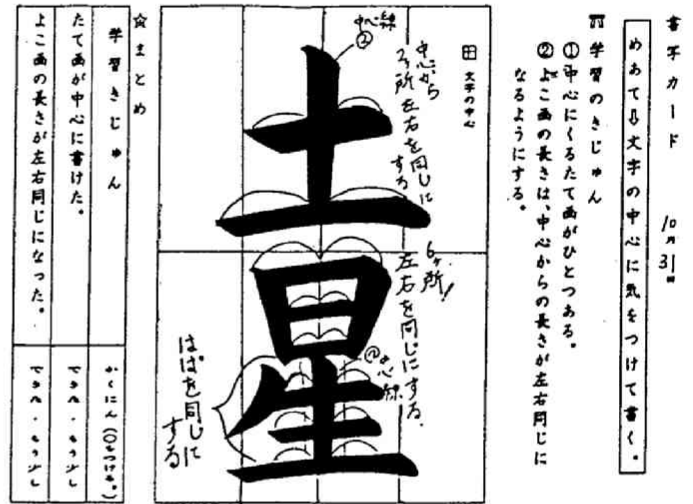 書写カード 10月31日
めあて⇩文字の中心に気をつけて書く。
学習のきじゅん
①中心にくるたて画がひとつある。
②よこ画の長さは、中心からの長さが左右同じに
なるようにする。
田 文字の中心
中心線
②
中心から
2ヶ所左右を同じに
する
土星
6ヶ所!
左右を同じにする。
中心線
はばを同じに
する
☆まとめ
学習きじゅん
かくにん(○をつける。)
たて画が中心に書けた。
できた・もう少し
よこ画の長さが左右同じになった。
できた・もう少し